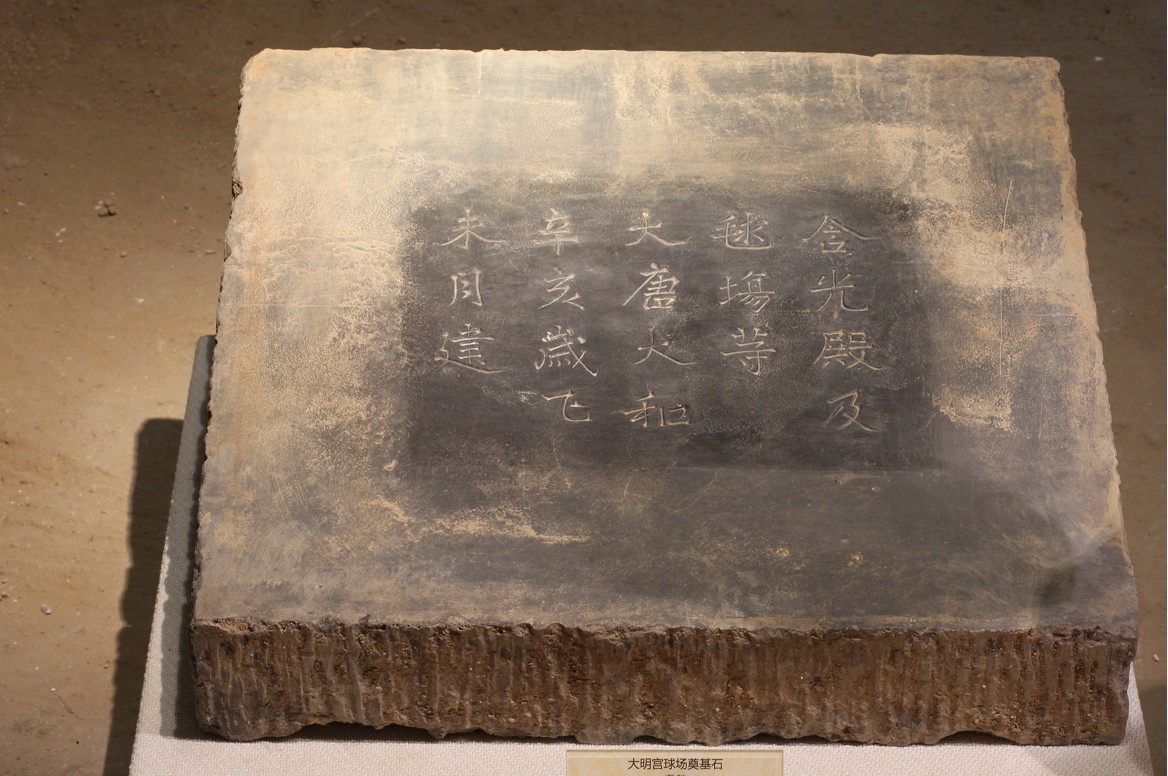 含光殿及
毬場等
大唐大和
辛亥歲乙
未月建
大明宫球场奠基石